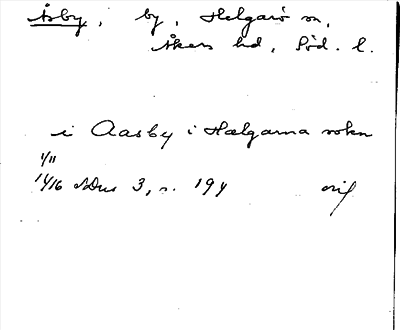 Åsby, by, Helgarö sn,
Åkers hd, Söd. l.
i Aasby i Hælgarna sokn
1/11
1416 SDns 3, s. 194
orig